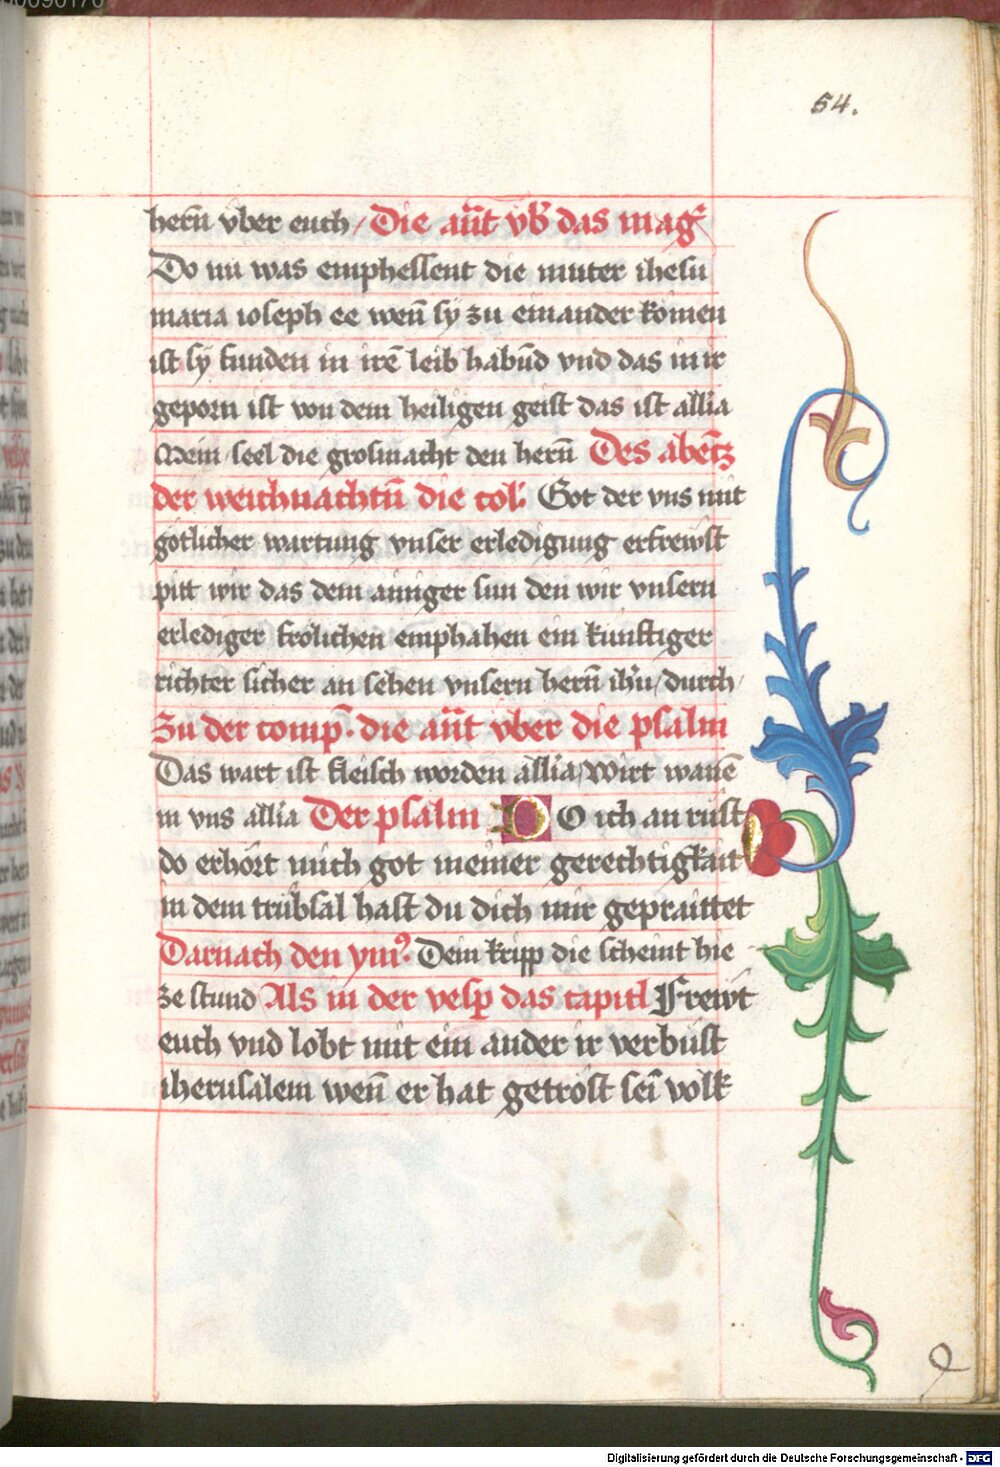 54.
hern̄ vber euch / Die an̄t vb̄ das mag̉
Do nu was emphelsent die muter ihesu
maria ioseph ee wen̄ sy zu einander komen
ist sy funden in irē leib habn̄d vnd das in ir
geporn ist von dem heiligen geist das ist all̄ia
Mein seel die grosmacht den hern̄ Des abentz
der weichnachtn̄ die col̄ Got der vns mit
gotlicher wartung vnser erledigung erfrewst
pitt wir das dem ainiger sun den wir vnsern
erlediger frolichen emphahen ein kunftiger
richter sicher an sehen vnsern hern̄ ih'u / durch /
Zu der comp̄ · die an̄t vber die psalm
Das wart ist fleisch worden all̄ia / Wirt wanē
in vns all̄ia Der psalm DO ich an rüft
do erhört mich got meiner gerechtigkait
in dem trübsal hast du dich mir gepraittet
Darnach den ym̉ · Dein kripp die scheint hie
ze stund Als in der vesp̄ das capitl Frewt
euch vnd lobt mit ein ander ir verbüst
iherusalem wen̄ er hat getrost sei̅ volk
Digitalisierung gefördert durch die Deutsche Forschungsgemeinschaft - DFG